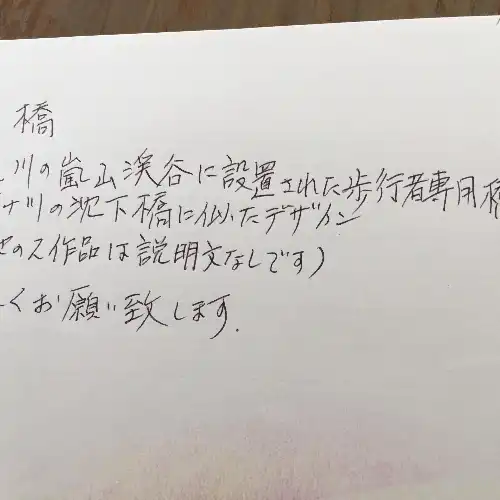 橋
川の嵐山渓谷に設置された歩行者専用橋
川の沈下橋に似たデザイン
の2作品は説明文なしです)
くお願い致します.